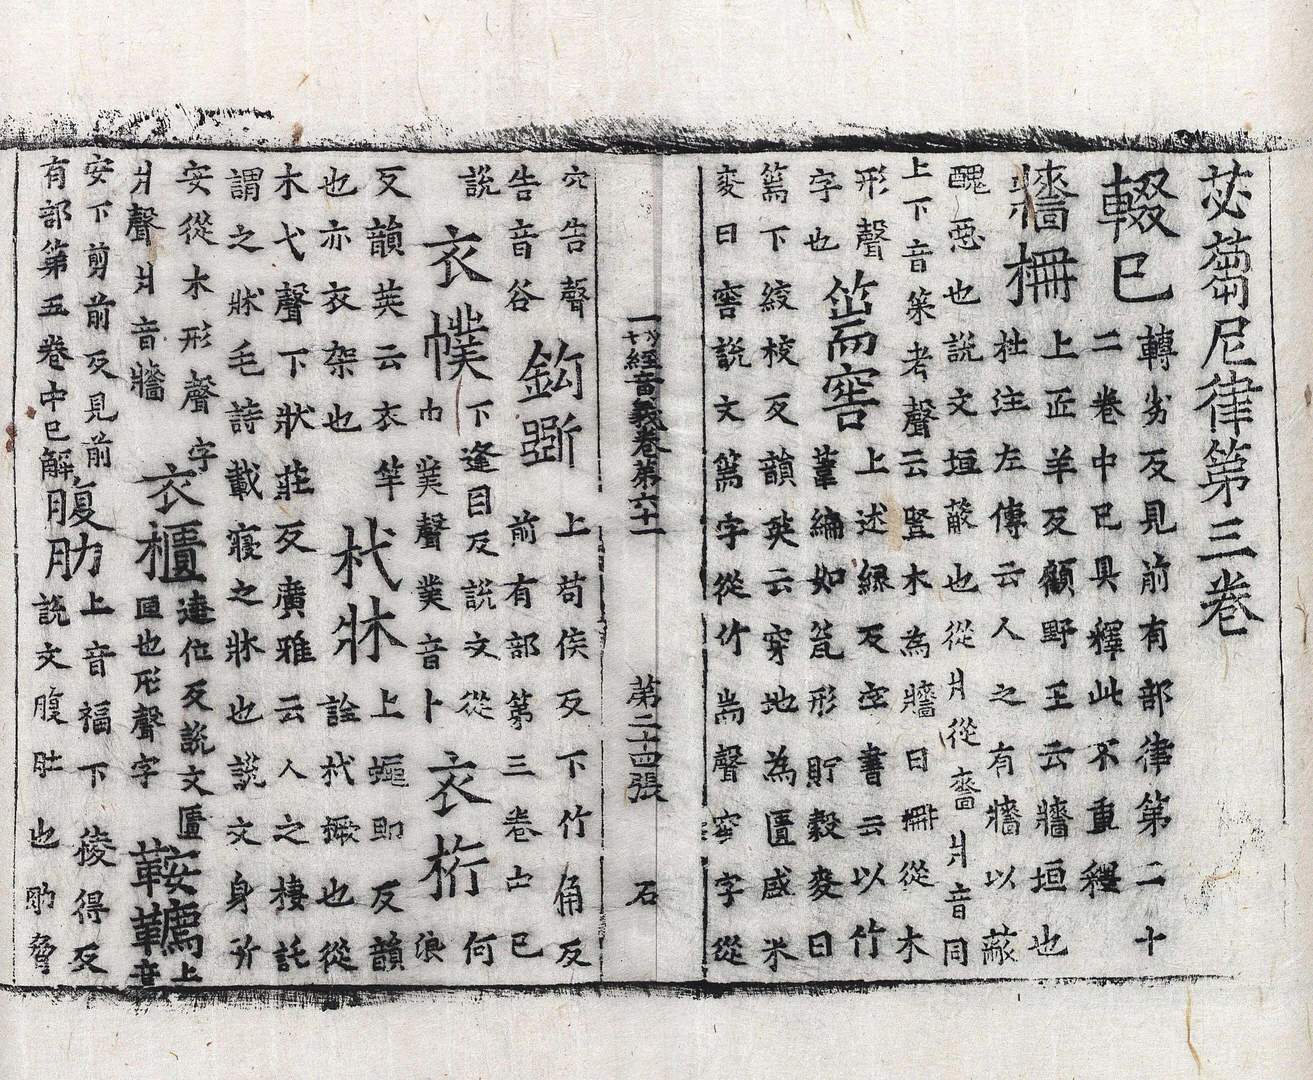 苾蒭尼律第三卷
輟已
轉劣反見前有部律第二十
二卷中已具釋此不重釋
牆柵
上匠羊反顧野王云牆垣也
杜注左傳云人之有牆以蔽
醜惡也說文垣蔽也從爿從嗇爿音同
上下音策考聲云竪木為牆曰柵從木
形聲
字也
篅窖
上述緣反空書云以竹
葦編如㼛形貯穀麥曰
篅下絞校反韻英云穿地為匱盛米
麥曰窖說文篅字從竹耑聲窖字從
一切經音義卷第六十一
第二十四張
石
穴告聲
告音谷
鉤斲
上苟侯反下竹角反
前有部第三卷已
說
衣幞
下逢目反說文從
巾菐聲菐音卜
衣桁
何浪
反韻英云衣竿
也亦衣架也
杙牀
上蠅即反韻
詮杙橛也從
木弋聲下狀莊反廣雅云人之棲託
謂之牀毛詩載寢之牀也說文身所
安從木形聲字
爿聲爿音牆
衣櫃
逵位反說文匱
匣也形聲字
鞍韉
上音
安下剪前反見前
有部第五卷中已解
腹肋
上音福下稜得反
說文腹肚也肋脅